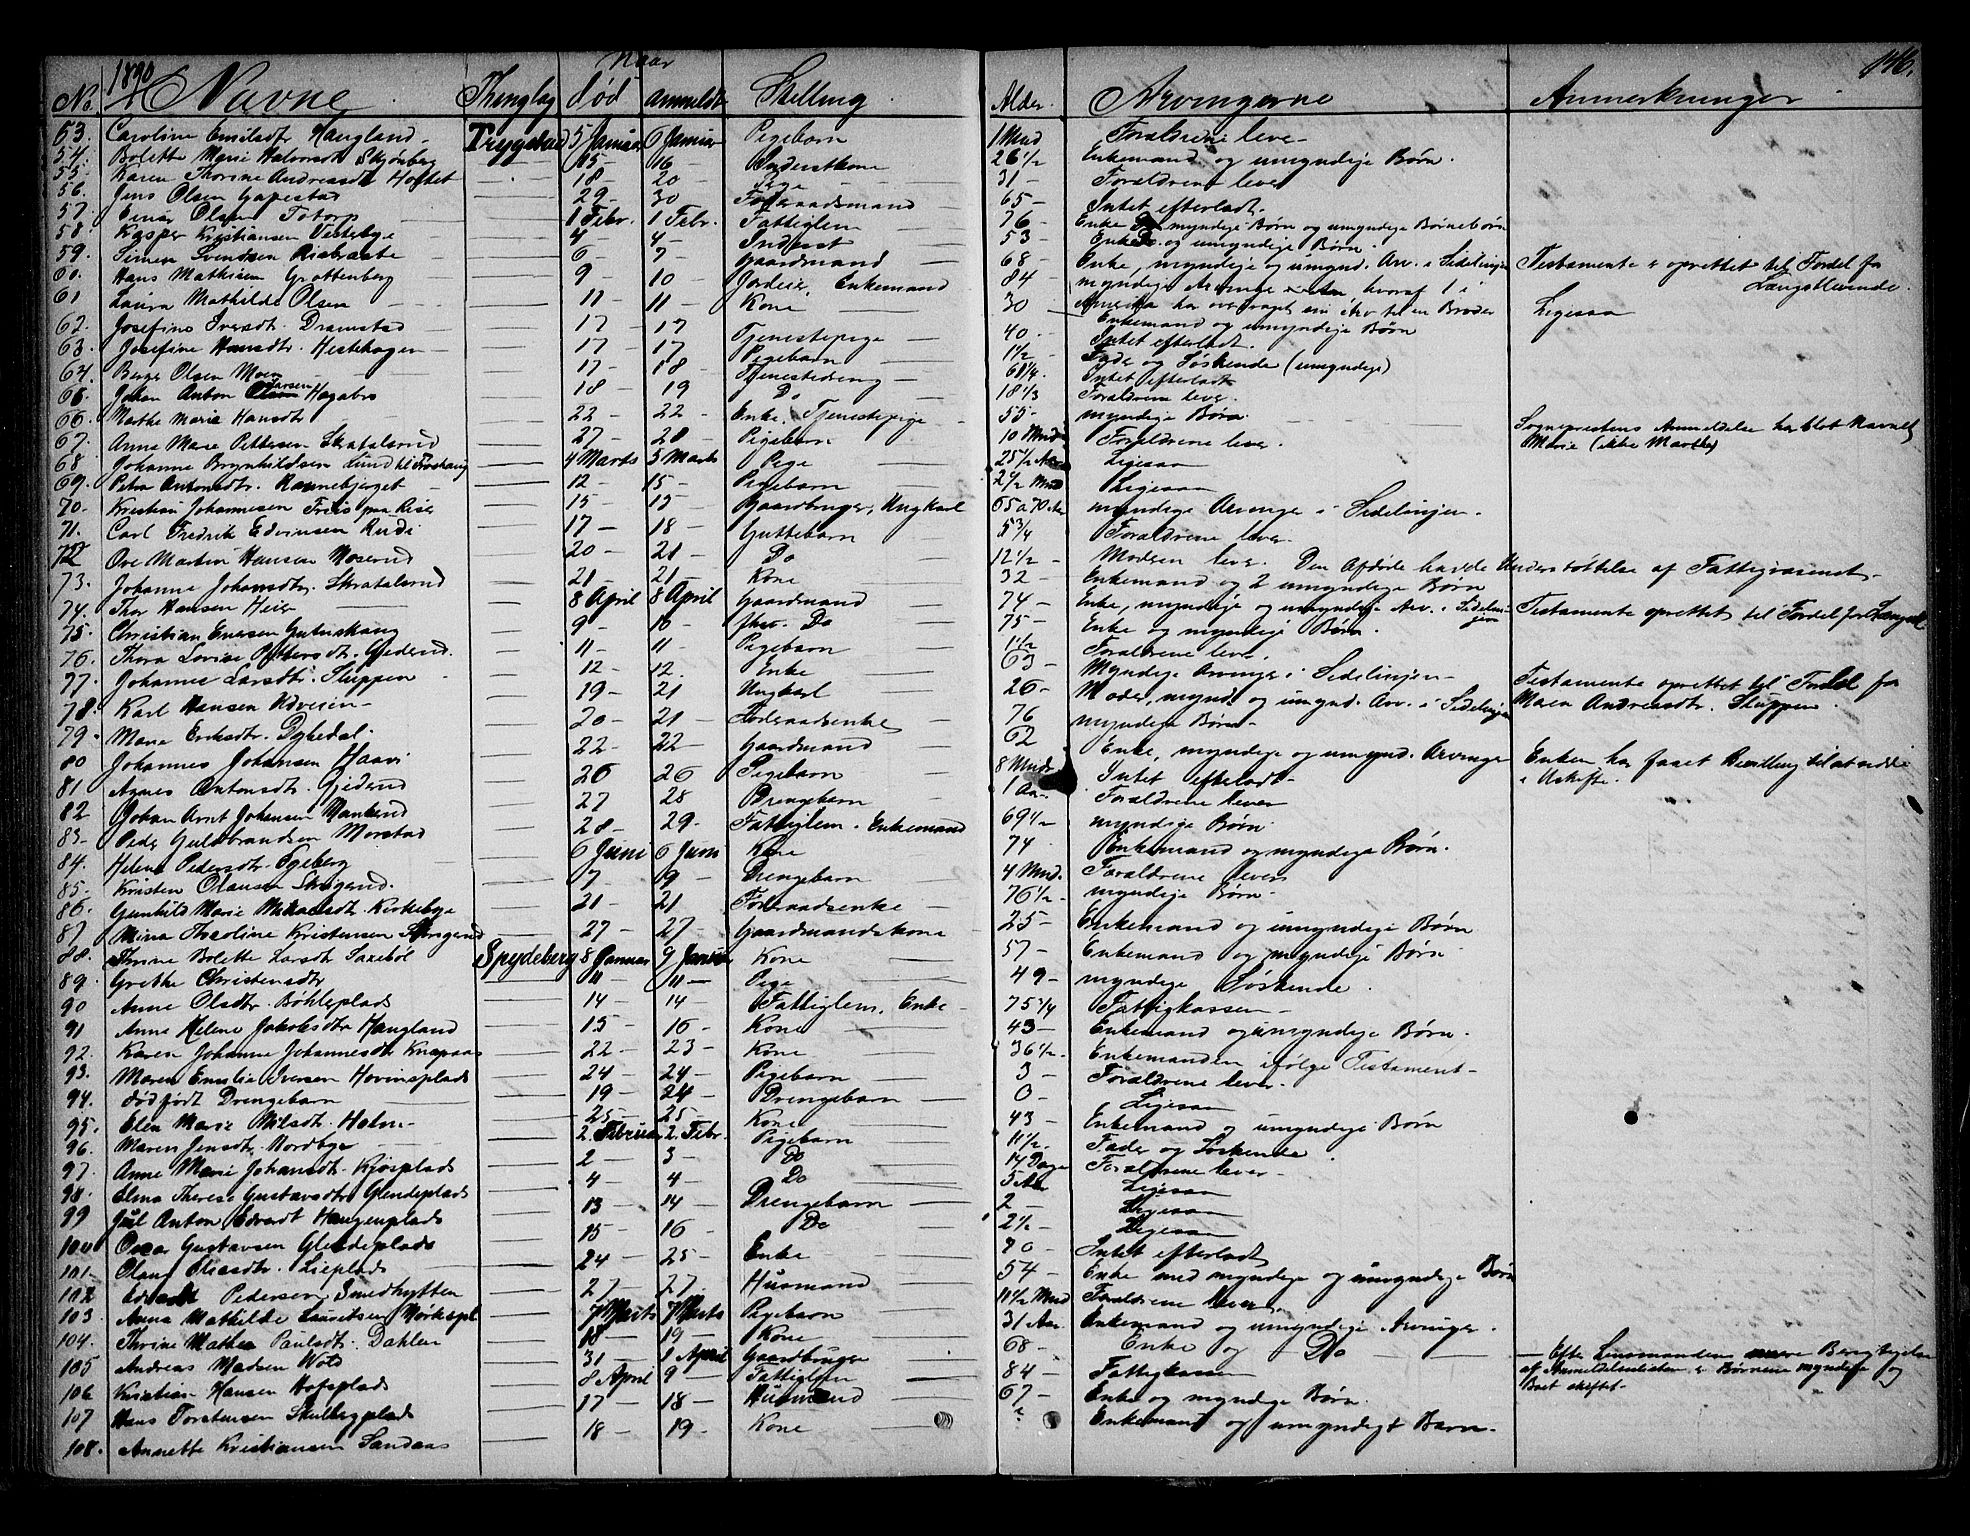 1890 Naar 146.
No. Navne Thinglag død anmeldt Stilling Alder Arvingerne Anmerkninger
53. Caroline Emilsdt Haugland Trygstad 5 Januar 6 Januar Pigebarn 1 Mnd Forældrene lever
54. Bolette Marie Halvorsdt Skjønberg 15 16 Inderstkone 26 1/2 Enkemand og umyndige Børn.
55. Karen Thorine Andreasdt Hoftet 18 20 Pige 31 Forældrene lever
56. Jens Olsen Gapestad 29 30 Føderaadsmand 65 Intet efterladt.
57. Einar Olsen Totorp 1 Febr. 1 Febr. Fattiglem 76 Enke myndige Børn og umyndige Børnebørn
58. Kasper Kristiansen Vestebye 4 4 Inderst 53 Enke og umyndige Børn.
59. Simen Svendsen Risbraate 6 7 Gaardmand 68 Enke, myndige og umynd. Arv. i Sidelinjen Testamente er oprettet til Fordel for
60. Hans Mathisen Grottenberg 9 10 Jordeier, Enkemand 84 myndige Arvinge hvoraf 1 i Længstlevende.
61 Laura Mathilde Olsen 11 11 Kone 30 Amerika har overdraget sin Arv til en Broder Ligesaa
Enkemand og umyndige Børn
62. Josefine Iversdt. Dramstad 17 17 Tjenestepige 40 Intet efterladt.
63. Josefine Hansdtr. Hestehagen 17 17 Pigebarn 1 1/2 Fader og Søskende (umyndige)
64. Berger Olsen Moen 17 18 Tjenestedreng 61 1/4 Intet efterladt
65. Johan Anton Larsen Hagabro 18 19 Do 18 1/3 Forældrene lever.
66. Marthe Marie Hansdt 22 22 Enke, Tjenestepige 55 myndige Børn Sogneprestens Anmeldelse har blot Navnet
67. Anne Marie Pettersen Skatalsrud 27 28 Pigebarn 10 Mnd Forældrene lever. Marie (ikke Marthe)
68. Johanne Brynhildsen Lund til Froshaug 4 Marts 5 Marts Pige 25 1/2 Aar Ligesaa
69. Petra Antonsdtr. Kannebjerget 12 15 Pigebarn 2 1/2 Mnd Ligesaa
70. Kristian Johannesen Freis paa Riser 15 15 Gaardbruger, Ungkarl 65 a 70 Aar myndige Arvinge i Sidelinjen.
71. Carl Fredrik Edvinsen Rudi 17 18 Guttebarn 5 3/4 Forældrene lever.
72 Ove Martin Hansen Moserud 20 21 Do 12 1/2 Moderen lever. Den Afdøde havde Understøttelse af Fattigvæsenet
73. Johanne Johansdtr. Skatalsrud 21 21 Kone 32 Enkemand og 2 umyndige Børn
74. Thor Hansen Heier 8 April 8 April Gaardmand 74 Enke, myndige og umyndige Arv. i Sidelinjen Testamente oprettet til Fordel for Længstl.
75. Christian Evensen Guturshaug 9 10 Do 75 Enke og myndige Børn.
76. Thora Lovise Pettersdt. Gjederud 11 11 Pigebarn 1 1/2 Forældrene lever.
77. Johanne Larsdtr. Skuppen 12 12. Enke 63 Myndige Arvinger i Sidelinjen Testamente oprettet til Fordel for
78. Karl Hansen Kverin 19 21 Ungkarl 26 Moder, mynd. og umynd. Arv. i Sidelinjen Maren Andreasdtr. Skuppen.
79. Marie Eriksdtr. Dybedal 20 21 Føderaadsenke 76 myndige Børn
80 Johannes Johansen Haavi 22 22 Gaardmand 62 Enke, myndige og umynd. Arvinger Enken har faaet Bevilling til at sidde
81 Agnes Antonsdtr. Gjederud 26 26 Pigebarn 8 Mnd. Intet efterladt i Uskifte.
82 Johan Arnt Johansen Mankerud 27 28 Drengebarn 1 Aar Forældrene lever
83. Peder Guldbrandsen Morstad 28 29. Fattiglem. Enkemand 69 1/2 myndige Børn
84. Helene Pedersdt. Egeberg 6 Juni 6 Juni Kone 74 Enkemand og myndige Børn.
85. Kristen Olausen Skogerud. 7 9 Drengebarn 4 Mnd. Forældrene lever
86. Gunhild Marie Mikaelsdt. Kirkebye 21 21 Føderaadsenke 76 1/2 myndige Børn
87. Mina Thoraline Kristensen Skogerud 27 27 Gaardmandskone 25 Enkemand og umyndige Børn
88. Thrine Bolette Larsdt Saxebøl Spydeberg 8 Januar 9 Januar Kone 57 Enkemand og myndige Børn
89. Grethe Christensdtr 11 11 Pige 49 myndige Søskende.
90 Anne Olsdtr. Bøhleplads 14 14 Fattiglem, Enke 75 3/4 Fattigkassen
91 Anne Helene Jakobsdtr Haugland 15 16 Kone 43 Enkemand og umyndige Børn.
92. Karen Johanne Johannesdt. Knapaas 22 23 Kone 36 1/2 Enkemanden ifølge Testament
93. Maren Emilie Iversen Hovinsplads 24 24 Pigebarn 3 Forældrene lever.
94. dødfødt Drengebarn 19 24 Drengebarn 0 Ligesaa
95. Elen Marie Nilsdt. Holm 25 25 Kone 43 Enkemand og umyndige Børn
96. Maren Jensdtr. Nordbye 2 Februar 2. Febr. Pigebarn 11 1/2 Fader og Søskende
97. Anne Marie Johansdt. Kjosplads 2 3 Do 14 Dage Forældrene lever
98. Elma Therese Gustavsdtr Glendeplads 4 4 Do 5 Aar Ligesaa
99 Jul Anton Edvardt Haugenplads 13 14 Drengebarn 2 Ligesaa
100 Oscar Gustavsen Glendeplads 15 16 Do 2 1/2 Ligesaa
101 Olang Eliasdtr. Lieplads 24 25 Enke 70 Intet efterladt
102 Edvardt Pedersen Smedhytten 27 27 Husmand 54 Enke med myndige og umyndige Børn
103 Anna Mathilde Lauritsen Mørkspl 7 Marts 7 Marts Pigebarn 11 1/2 Mnd Forældrene lever.
104. Thrine Mathea Paulsdt. Dahlen 18 19 Kone 31 Aar. Enkemand og umyndige Arvinger.
105 Andreas Madsen Woto 31 1 April Gaardbruger 68 Enke og Do Efter Lensmandens Berigtigelse
106 Kristian Hansen Hofsplads 8 April 9 Fattiglem 84 Fattigkassen af Anmeldelseslisten er Børnene myndige og
107 Hans Torstensen Skulbergplads 17 18 Husmand 67 Enke og myndige Børn. Boet skiftet.
108. Annette Kristiansen Sandaas 18 19 Kone ? Enkemand og umyndigt Barn.